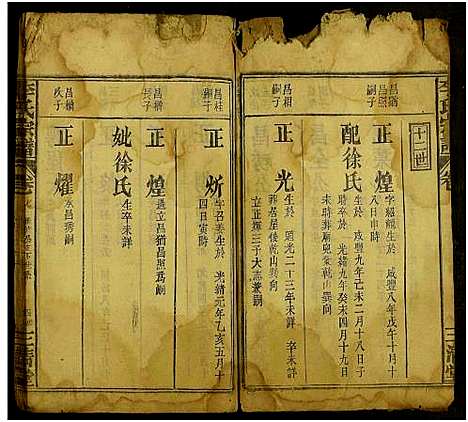 十二世
昌猶
昌照
嗣子
正煌
字紹龍生於 咸豐八年戊午十月十
八日申時
配徐氏
生於 咸豐九年己未二月十八日子
時卒於 光緒九年癸未四月十九日
未時葬廟兜巽乾山巽向
昌相
嗣子
正光
生於 道光二十三年未詳 卒未詳
葬若屋後乾山巽向
立正輝三子大志兼嗣
昌桂
嗣子
正炘
字召麥生於 光緒元年乙亥五月十
四日寅時
昌猶
長子
正煌
過立昌猶昌照為嗣
妣徐氏
生卒未詳
次子
正耀
承昌秀嗣
三清堂